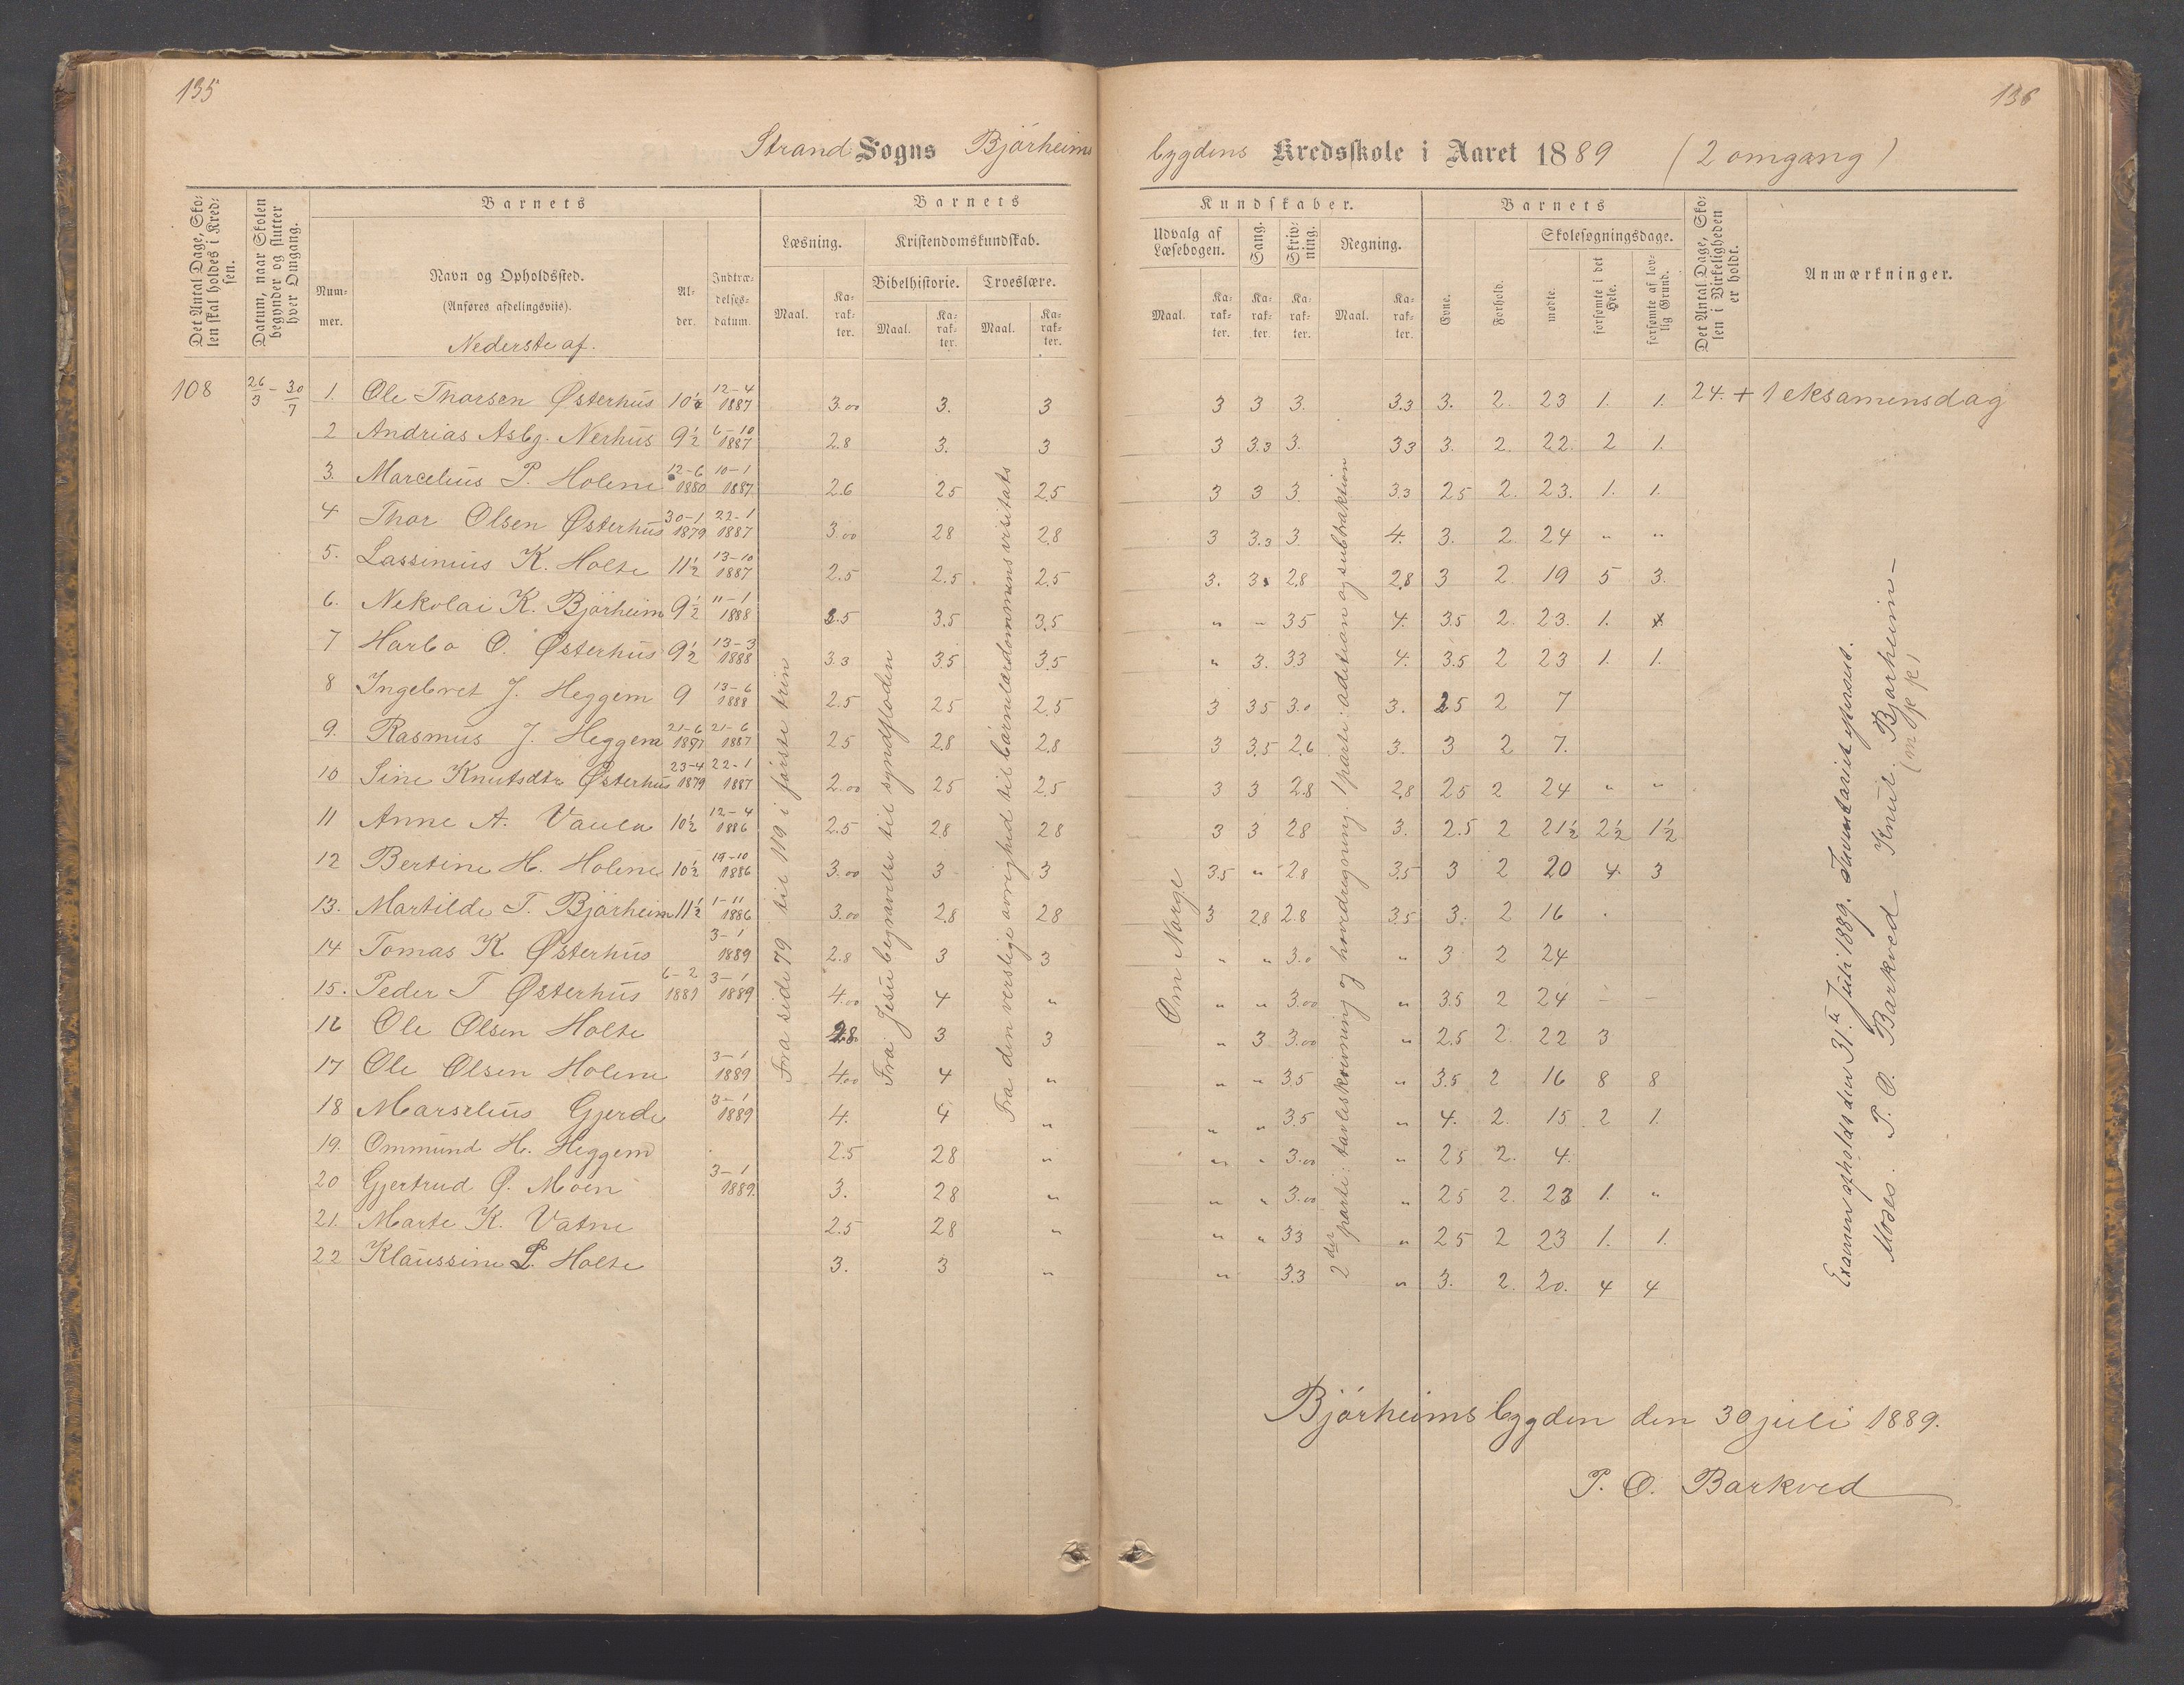 135
136
Strand Sogns Bjørheims
bygdens Kredsskole i Aaret 1889 (2 omgang)
Det Antal Dage, Skolen skal holdes i Kredsen.
Datum, naar Skolen begynder og slutter hver Omgang.
Barnets
Nummer.
Navn og Opholdssted.
(Anføres afdelingsviis).
Nederste af.
Alder.
Indtrædelsesdatum.
Barnets
Læsning.
Maal.
Karakter.
Kristendomskundskab.
Bibelhistorie.
Maal.
Karakter.
Troeslære.
Maal.
Karakter.
Kundskaber.
Udvalg af Læsebogen.
Maal.
Karakter.
Sang.
Karakter.
Skrivning.
Karakter.
Regning.
Maal.
Karakter.
Barnets
Evne.
Forhold.
Skolesøgningsdage.
mødte.
forsømte i det Hele.
forsømte af lovlig Grund.
Det Antal Dage, Skolen i Virkeligheden er holdt.
Anmærkninger.
108 26/3 – 30/7 1. Ole Thorsen Østerhus 10½ 12–4 1887 3.00 3. 3 3 3 3. 3.3 3. 2. 23 1. 1. 24. + 1 eksamensdag
2 Andrias Asbg. Nerhus 9½ 6–10 1887 2.8 3. 3 3 3.3 3. 3.3 3. 2. 22. 2 1.
3. Marcelius P. Holene 12–6 1880 10–1 1887 2.6 2.5 2.5 3 3 3 3.3 2.5 2. 23. 1. 1.
4 Thor Olsen Østerhus 30–1 1879 22–1 1887 3.00 2.8 2.8 3 3.3 3. 4. 3. 2 24 " "
5. Lassimus K. Holte 11½ 13–10 1887 2.5 2.5 2.5 3. 3. 2.8 2.8 3 2. 19 5 3.
6. Nekolai K. Bjørheim 9½ 11–1 1888 3.5 3.5 3.5 " " 3.5 4. 3.5 2. 23. 1.
7 Harbo O. Østerhus 9½ 13–3 1888 3.3 3.5 3.5 " 3. 3.3 4. 3.5 2 23 1. 1.
8 Ingebret J. Heggem 9 13–6 1888 2.5 2.5 2.5 3 3.5 3.0 3. 2.5 2 7
9. Rasmus J. Heggem 21–6 1877 21–6 1887 2.5 2.8 2.8 3 3.5 2.6 3. 3 2 7.
10 Sine Knutsdtr Østerhus 23–4 1879 22–1 1887 2.00 2.5 2.5 3 3 2.8 2.8 2.5 2 24 " "
11 Anne A. Vaula 10½ 12–4 1886 2.5 2.8 2.8 3 3 2.8 3. 2.5 2 21½ 2½ 1½
12 Bertine H. Holene 10½ 19–10 1886 3.00 3 3 3.5 " 2.8 3.5 3 2 20 4 3
13. Martilde T. Bjørheim 11½ 1–11 1886 3.00 2.8 2.8 3 2.8 2.8 3.5 3. 2 16
14 Tomas K Østerhus 3–1 1889 2.8 3 3 " " 3.0 " 3 2 24
15. Peder T Østerhus 6–2 1881 3–1 1889 4.00 4 " " " 3.00 " 3.5 2 24 – –
16 Ole Olsen Holte 2.8 3 3 " 3 3.00 " 2.5 2. 22 3
17 Ole Olsen Holene 3–1 1889 4.00 4 " " " 3.5 " 3.5 2 16 8 8
18 Marselius Gjerde 3–1 1889 4. 4 " " " 3.5 " 4. 2. 15 2 1.
19. Ommund H. Heggem 2.5 2.8 " " " 3.00 " 2.5 2. 4.
20 Gjertrud Ø. Moen 3–1 1889. 3. 2.8 " " " 3.00 " 2.5 2. 23 1. "
21. Marte K. Vatne 2.5 2.8 " " " 3.3 " 2.5 2 23 1. 1.
22 Klaussine L. Holte 3. 3 " " 3.3 " 3. 2. 20. 4 4
Fra side 79 til 119 i første trin
Fra Jesu begravelse til syndfloden
Fra den verslige øvrighed til barnelærdommens visitats
Om Norge
2den parti: tavleskrivning og hovedregning. 1 parti: adition og subtraktion
Examen afholdes den 31te Juli 1889. Inventariet
Moses. P. O. Barkved Knut Bjørheim –
(m p p)
Bjørheimsbygden den 30 juli 1889.
P. O. Barkved